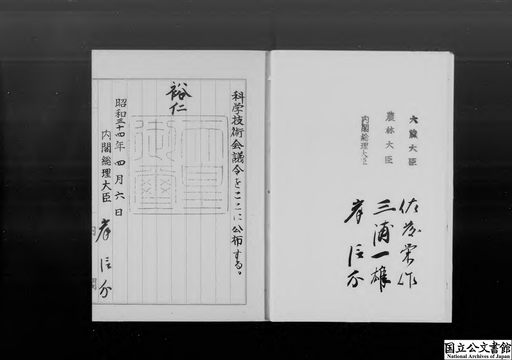 大蔵大臣
佐藤栄作
農林大臣
三浦一雄
内閣総理大臣
岸信介
科学技術会議令をここに公布する。
裕仁
天皇御璽
昭和三十四年四月六日
内閣総理大臣 岸信介
内閣
国立公文書館
National Archives of Japan